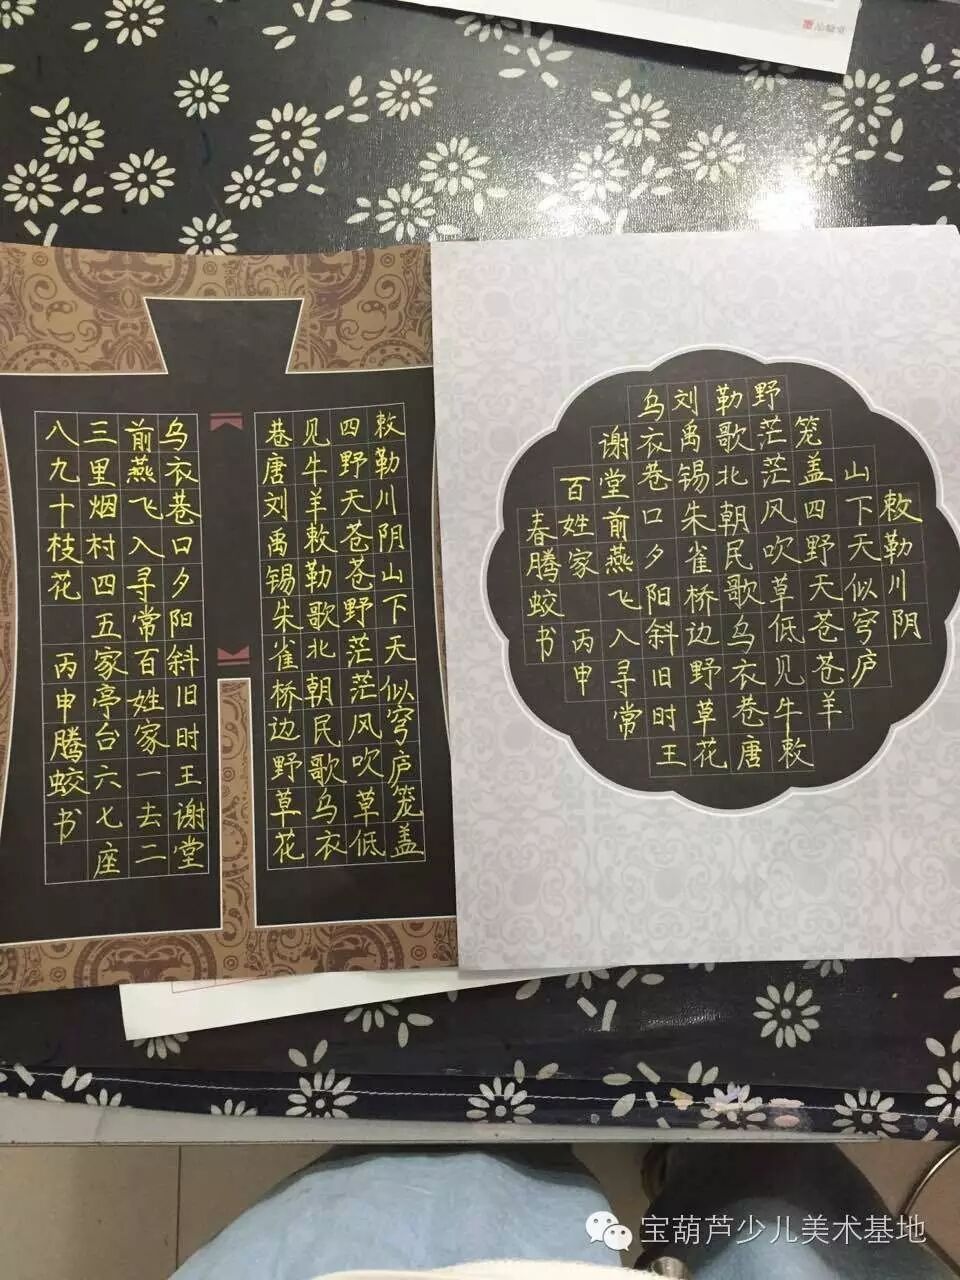 敕勒川阴山下天似穹庐笼盖
四野天苍苍野茫茫风吹草低
见牛羊敕勒歌北朝民歌乌衣
巷唐刘禹锡朱雀桥边野草花
乌衣巷口夕阳斜旧时王谢堂
前燕飞入寻常百姓家一去二
三里烟村四五家亭台六七座
八九十枝花 丙申腾蛟书
敕勒川阴
山下天似穹庐
笼盖四野天苍苍羊
野茫茫风吹草低见牛敕
勒歌北朝民歌乌衣巷唐
刘禹锡朱雀桥边野草花
乌衣巷口夕阳斜旧时王
谢堂前燕飞入寻常
百姓家 丙申
春腾蛟书
宝葫芦少儿美术基地